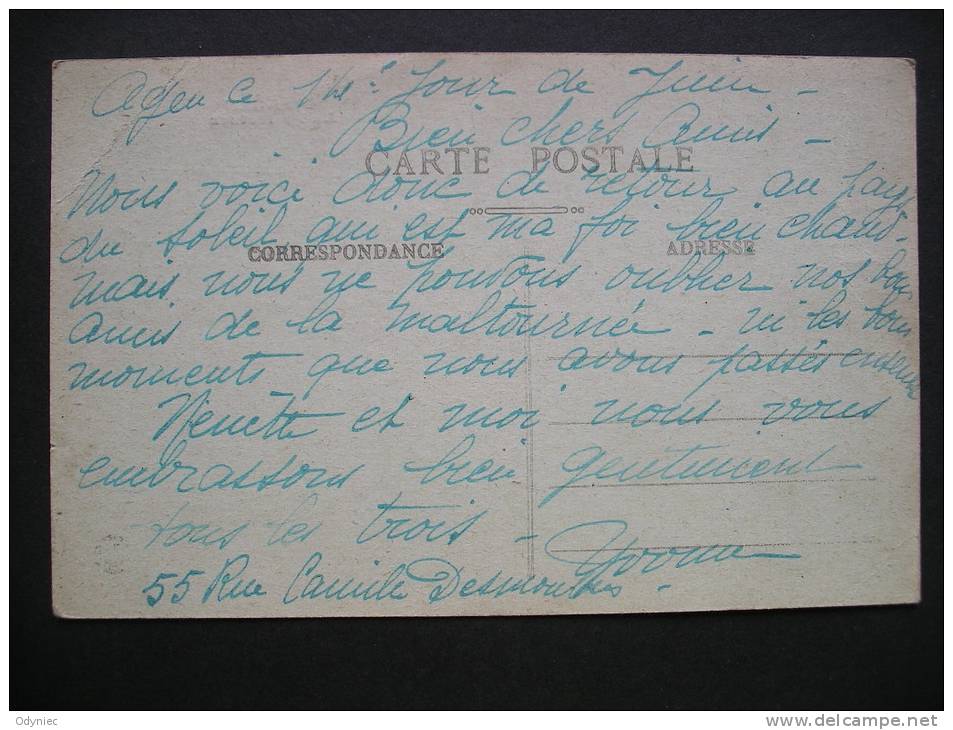 Agen ce 1er Jour de Juin -
Bien chers Amis -
CARTE POSTALE
Nous voici donc de retour au pays
du soleil qui est ma foi bien chaud -
CORRESPONDANCE
ADRESSE
mais nous ne pouvons oublier nos bons
amis de la Maltournée - ni les bons
moments que nous avons passés ensemble
et moi nous vous
embrassons bien gentiment
tous les trois -
Yvonne
55 Rue Camille Desmoulins -
Odyniec
www.delcampe.net